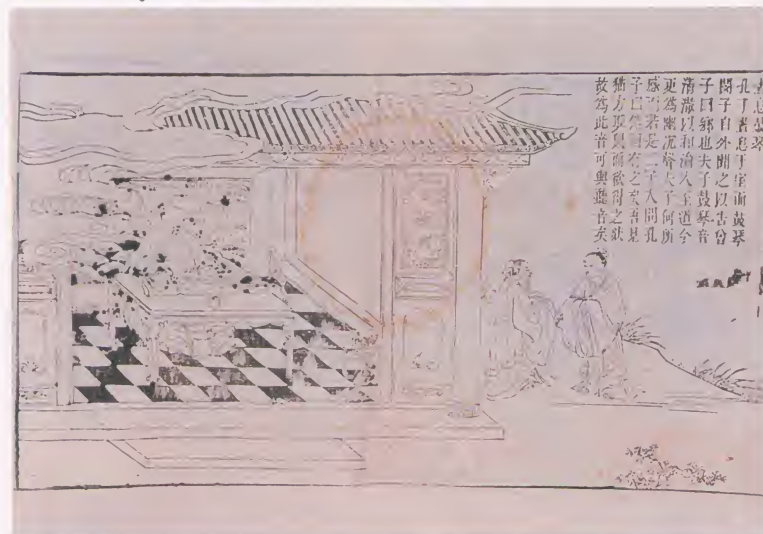 晝息鼓琴
孔子晝息于室而鼓琴
閔子自外聞之以告曾
子曰鄉也夫子鼓琴音
清澈以和淪入至道今
更為幽沉聲夫子何所
感而若是二子入問孔
子曰然有之矣吾見
猫方取鼠而欲得之狀
故為此音可與聽音矣